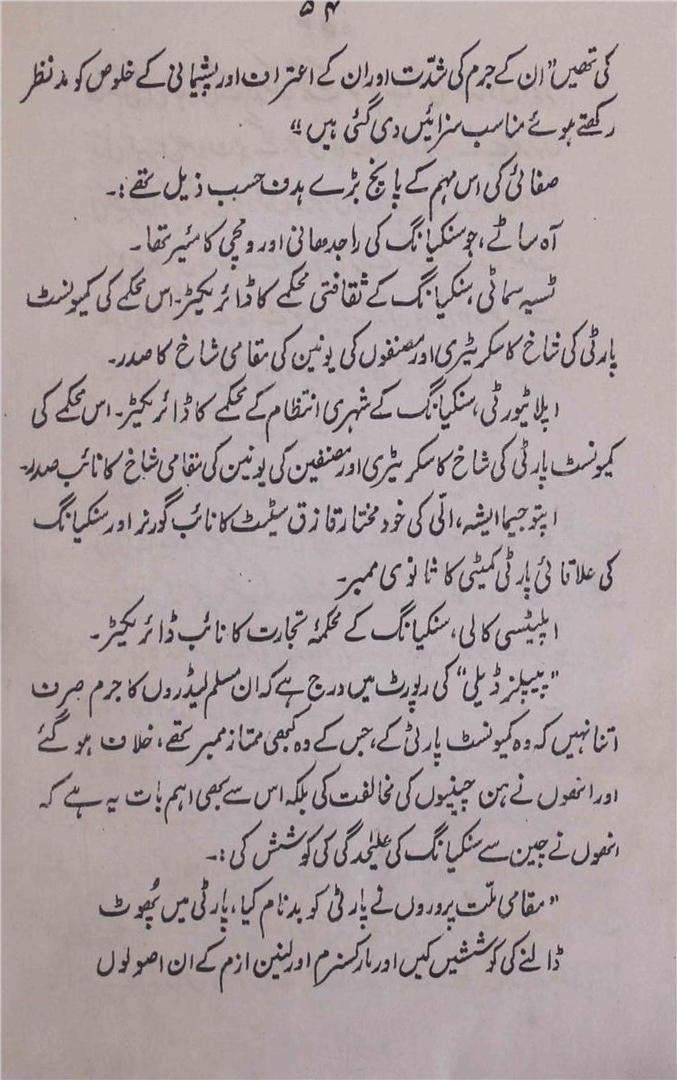 ۵۴
کی تھیں "ان کے جرم کی شدّت اور ان کے اعتراف اور پشیمانی کے خلوص کو مدنظر
رکھتے ہوئے مناسب سزائیں دی گئی ہیں"
صفائی کی اس مہم کے پانچ بڑے ہدف حسب ذیل تھے:۔
آہ ساٹے، جو سنکیانگ کی راجدھانی اورومچی کا میئر تھا۔
تسیہ سماٹی، سنکیانگ کے ثقافتی محکمے کا ڈائریکٹر۔ اس محکمے کی کمیونسٹ
پارٹی کی شاخ کا سکریٹری اور مصنفوں کی یونین کی مقامی شاخ کا صدر۔
اپلاٹیورٹی، سنکیانگ کے شہری انتظام کے محکمے کا ڈائریکٹر۔ اس محکمے کی
کمیونسٹ پارٹی کی شاخ کا سکریٹری اور مصنفین کی یونین کی مقامی شاخ کا نائب صدر۔
اپتوجیما ایشہ، اتّی کی خود مختار قازق سٹیٹ کا نائب گورنر اور سنکیانگ
کی علاقائی پارٹی کمیٹی کا ثانوی ممبر۔
اپلیٹسی کالی، سنکیانگ کے محکمۂ تجارت کا نائب ڈائریکٹر۔
"پیپلز ڈیلی" کی رپورٹ میں درج ہے کہ ان مسلم لیڈروں کا جرم صرف
اتنا نہیں کہ وہ کمیونسٹ پارٹی کے، جس کے وہ کبھی ممتاز ممبر تھے، خلاف ہو گئے
اور انھوں نے ہن چینیوں کی مخالفت کی بلکہ اس سے بھی اہم بات یہ ہے کہ
انھوں نے چین سے سنکیانگ کی علیٰحدگی کی کوشش کی:۔
"مقامی ملّت پروروں نے پارٹی کو بدنام کیا، پارٹی میں پُھوٹ
ڈالنے کی کوششیں کیں اور مارکسزم اور لینن ازم کے ان اصولوں